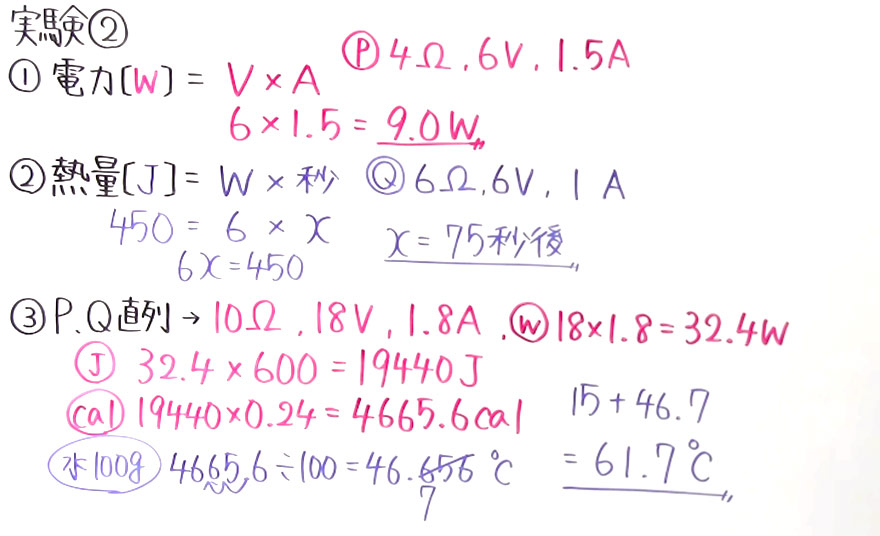 実験②
Ⓟ 4Ω, 6V, 1.5A
① 電力[W] = V × A
6 × 1.5 = 9.0W
② 熱量[J] = W × 秒 Ⓠ 6Ω, 6V, 1 A
450 = 6 × x
6x = 450
x = 75秒後
③ P, Q直列 → 10Ω, 18V, 1.8A, Ⓦ 18×1.8 = 32.4W
Ⓙ 32.4 × 600 = 19440J
cal 19440×0.24 = 4665.6cal
水100g 4665.6 ÷ 100 = 46.656 ℃
7
15 + 46.7
= 61.7℃